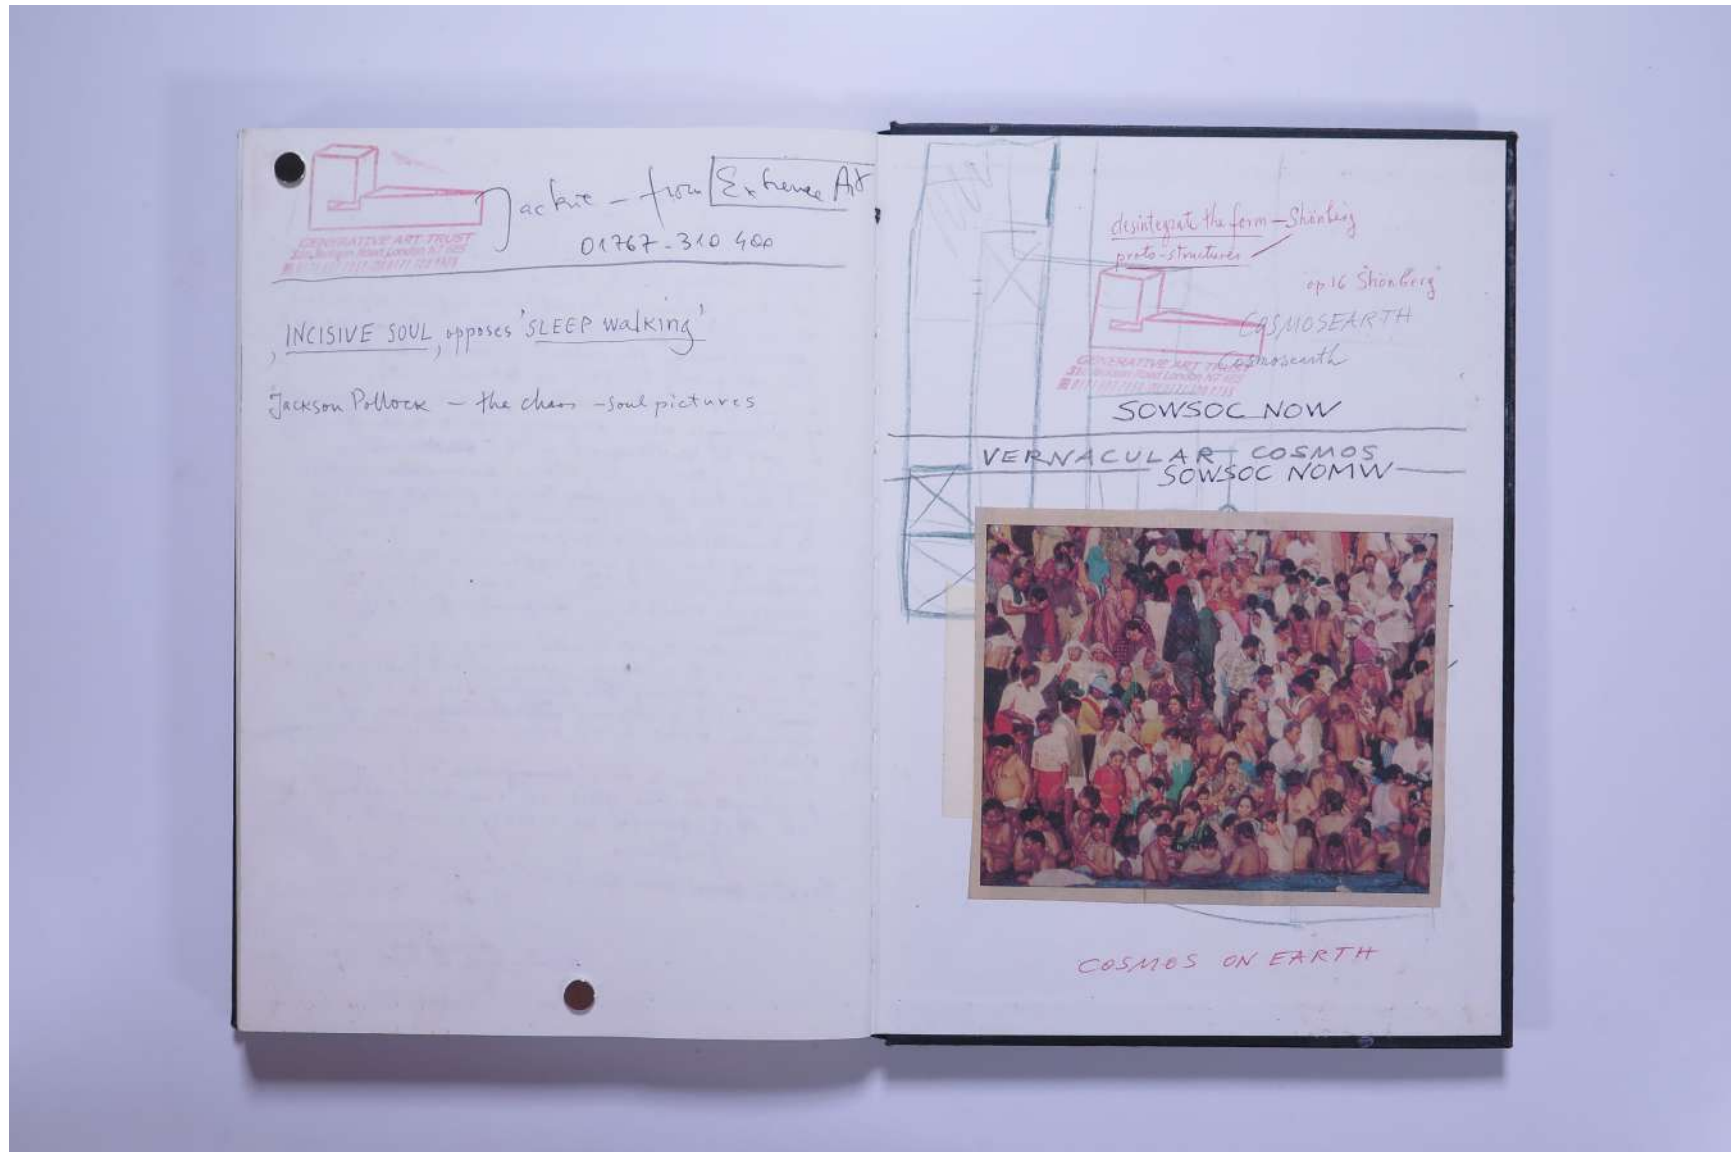 Jackie - from Extreme Art
01767-310 400
GENERATIVE ART TRUST
INCISIVE SOUL, opposes 'SLEEP walking'
Jackson Pollock - the chaos - soul pictures
desintegrate the form - Shönberg
proto-structures
op 16 Shönberg
COSMOSEARTH
Cosmosearth
GENERATIVE ART TRUST
SOWSOC NOW
VERNACULAR COSMOS
SOWSOC NOMW
COSMOS ON EARTH